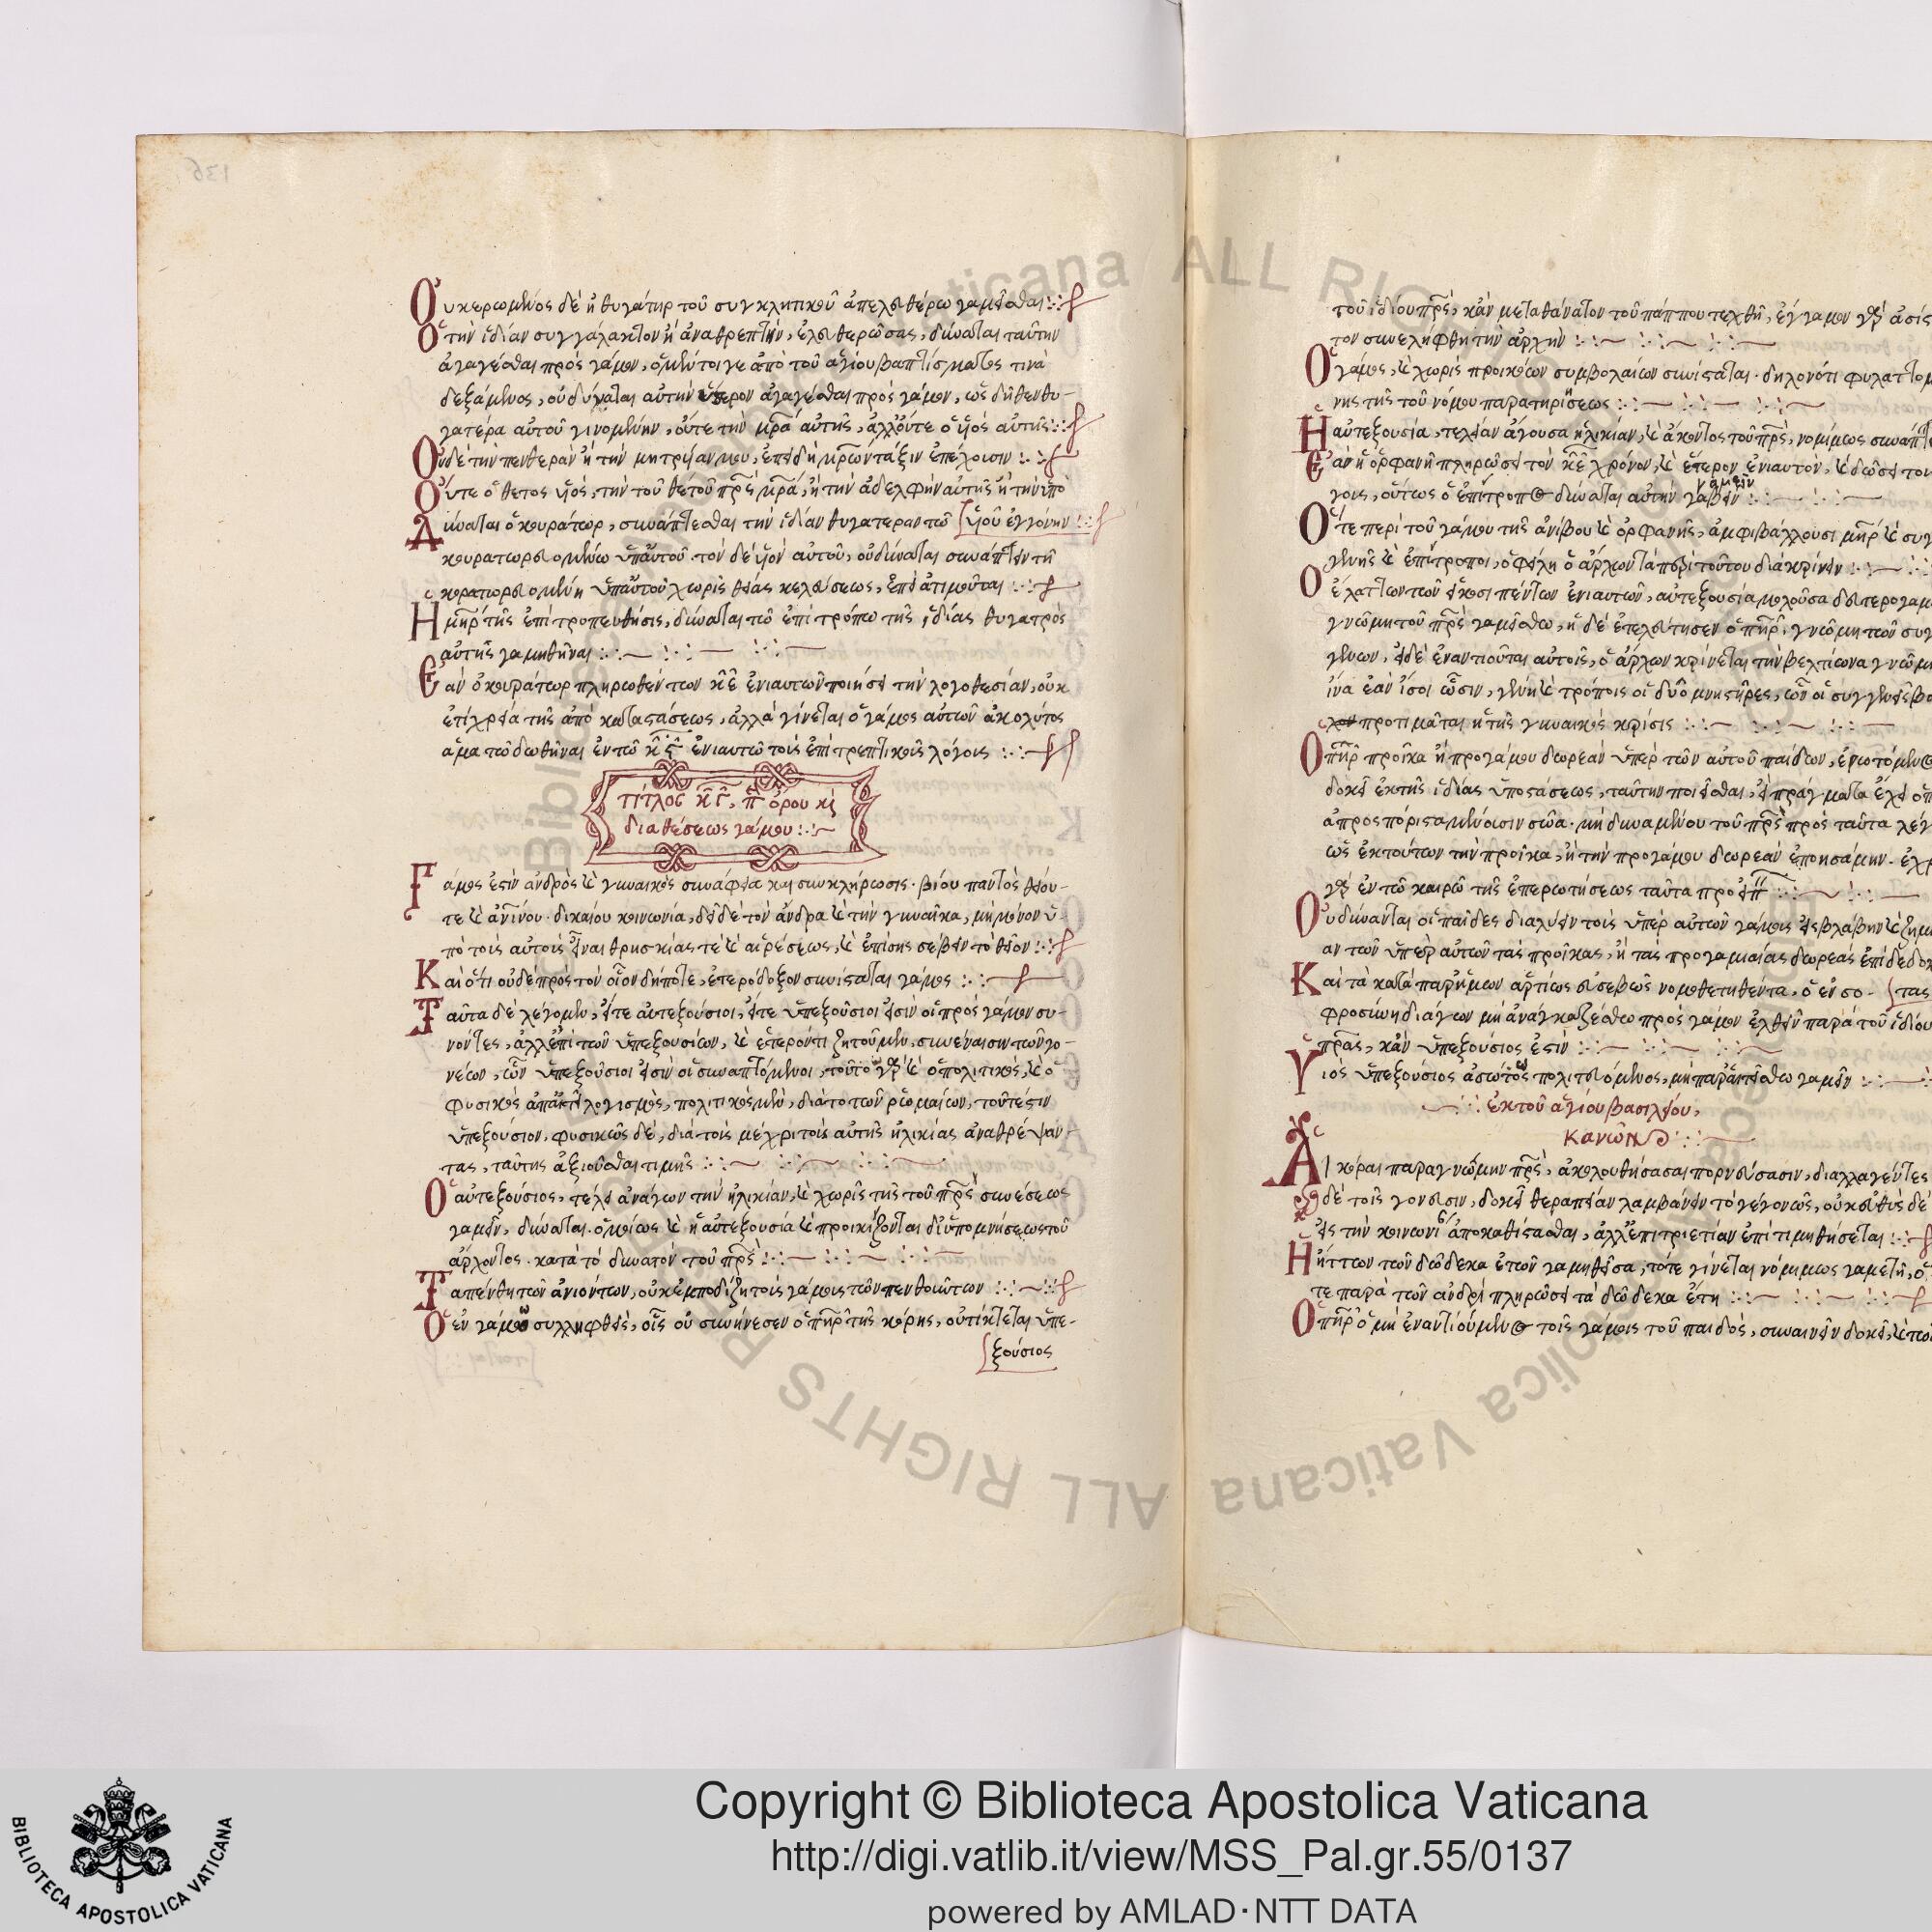 Οὐ κεκωλυμένος δὲ ἡ θυγάτηρ τοῦ συγκλητικοῦ ἀπελευθέρω γαμεῖσθαι
Ὁ τὴν ἰδίαν συγγάλακτον ἢ ἀναθρεπτὴν, ἐλευθερώσας, δύναται ταύτην
ἀγαγέσθαι πρὸς γάμον, ὁ μέντοι γε ἀπὸ τοῦ ἁγίου βαπτίσματος τινὰ
δεξάμενος, οὐ δύναται αὐτὴν ὕστερον ἀγαγέσθαι πρὸς γάμον, ὡς δῆθεν θυ-
γατέρα αὐτοῦ γινομένην, οὔτε τὴν μρα αὐτῆς, ἀλλ' οὔτε ὁ υἱὸς αὐτῆς
Οὐδὲ τὴν πενθερὰν ἢ τὴν μητρυιάν μου, ἐπειδὴ μρων τάξιν ἐπέχουσιν
Οὔτε ὁ θετὸς υἱός, τὴν τοῦ θετοῦ πρς μρα, ἢ τὴν ἀδελφὴν αὐτῆς ἢ τὴν ὑπὸ
υἱοῦ ἐγγόνην
Δύναται ὁ κουράτωρ, συνάπτεσθαι τὴν ἰδίαν θυγατέραν τῶ
κουρατωρευομένω ὑπ' αὐτοῦ. τὸν δὲ υἱὸν αὐτοῦ, οὐ δύναται συνάπτειν τῆ
κορατωρευομένη ὑπ' αὐτοῦ χωρὶς θείας κελεύσεως, ἐπεὶ ἀτιμοῦται
Ἡ μηρ τῆς ἐπιτροπευθήσις, δύναται τῶ ἐπιτρόπω τῆς ἰδίας θυγατρὸς
αὐτῆς γαμηθῆναι
Ἐὰν ὁ κουράτωρ πληρωθέντων κε ἐνιαυτῶν ποιήσει τὴν λογοθεσίαν, οὐκ
ἐπίχρεία τῆς ἀποκαταστάσεως, ἀλλὰ γίνεται ὁ γάμος αὐτῶν ἀκολύτος
ἅμα τῶ δωθῆναι ἐν τῶ κς ἐνιαυτῶ τοῖς ἐπιτρεπτικοῖς λόγοις
τίτλος κγ, π ὅρου κὶ
διαθέσεως γάμου
Γάμος ἐστὶν ἀνδρὸς καὶ γυναικὸς συνάφεια καὶ συνκλήρωσις. βίου παντὸς θείου-
τε καὶ ἀνινου. δικαίου κοινωνία, δεῖ δὲ τὸν ἄνδρα καὶ τὴν γυναῖκα, μὴ μόνον ὑ-
πὸ τοῖς αὐτοῖς εἶναι θρησκίας τὲ καὶ αἱρέσεως, καὶ ἐπίσης σέβειν τὸ θεῖον
Καὶ ὅτι οὐδὲ πρὸς τὸν οἷον δήποτε, ἑτερόδοξον συνίσταται γάμος
Ταῦτα δὲ λέγομεν, εἴτε αὐτεξούσιοι, εἴτε ὑπεξούσιοι εἰσὶν οἱ πρὸς γάμον συ-
νόντες, ἀλλ' ἐπὶ τῶν ὑπεξουσίων, καὶ ἕτερόν τι ζητοῦμεν, συνέναισιν τῶν γο-
νέων, ὧν ὑπεξούσιοι εἰσὶν οἱ συναπτόμενοι, τοῦτο γὰρ καὶ ὁ πολιτικὸς, καὶ ὁ
φυσικὸς ἀπαιτεῖ λογισμὸς, πολιτικὸς μὲν, διὰ τὸ τῶν ρωμαίων, τουτέστιν
ὑπεξούσιον. φυσικῶς δὲ, διὰ τοὶς μέχρι τοὶς αὐτῆς ἡλικίας ἀναθρέψαν-
τας, ταύτης ἀξιοῦσθαι τιμῆς
Ὁ αὐτεξούσιος, τέλει ἀνάγων τὴν ἡλικίαν, καὶ χωρὶς τῆς τοῦ πρς συνέσεως
γαμεῖν, δύναται. ὁμοίως καὶ ἡ αὐτεξουσία καὶ προικίζονται δι' ὑπομνήσεως τοῦ
ἄρχοντος. κατὰ τὸ δυνατὸν τοῦ πρς
Τὰ πένθη τῶν ἀνιόντων, οὐκ ἐμποδίζη τοῖς γάμοις τῶν πενθούντων
Ὁ ἐν γάμω συλληφθεὶς, οἷς οὐ συνήνεσεν ὁ πηρ τῆς κόρης, οὐ τίκτεται ὑπε-
ξούσιος
τοῦ ἰδίου πρς, κἂν μετὰ θάνατον τοῦ πάππου τεχθῆ, ἐγ γάμον γὰρ ἀσίς
τον συνελήφθη τὴν ἀρχὴν
Ὁ γάμος, καὶ χωρὶς προικώων συμβολαίων συνίσταται. δηλονότι φυλαττομ
νης τῆς τοῦ νόμου παρατηρήσεως
Ἡ αὐτεξουσία, τελείαν ἄγουσα ἡλικίαν, καὶ ἄκοντος τοῦ πρς, νομίμως συνάπτε
Ἐὰν ἡ ὀρφανὴ πληρώσει τὸν κε χρόνον, καὶ ἕτερον ἐνιαυτὸν, καὶ δώσει τον
γοις, οὕτως ὁ ἐπίτροπος δύναται αὐτὴν λαβεῖν
γαμεῖν
Ὅτε περὶ τοῦ γάμου τῆς ἀνίβου καὶ ὀρφανῆς, ἀμφιβάλλουσι μηρ καὶ συγ
γενῆς καὶ ἐπίτροποι, ὀφείλη ὁ ἄρχων τὰ περὶ τούτου διακρίνειν
Ὁ ἐλάττων τῶν εἴκοσι πέντων ἐνιαυτῶν, αὐτεξουσία μολοῦσα δευτερογαμ
γνώμη τοῦ πρς γαμείσθω, εἰ δὲ ἐτελεύτησεν ὁ πηρ, γνώμη τῶν συγ
γενων. εἰ δὲ ἐναντιοῦται αὐτοῖς, ὁ ἄρχων κρίνεται τὴν βελτίωνα γνώμη
ἵνα ἐὰν ἴσοι ὦσιν, γένη καὶ τρόποις οἱ δύο μνηστῆρες, ὧν οἱ συγγενεῖς βο
προτιμᾶται ἡ τῆς γυναικὸς κρίσις
Ὁ πηρ προῖκα ἢ προγάμου δωρεὰν ὑπὲρ τῶν αὐτοῦ παίδων, ἐνωτόμενος
δοκεῖ ἐκ τῆς ἰδίας ὑποστάσεως, ταύτην ποιεῖσθαι, εἰ πράγματα ἔχει ὁ π
ἀπροσπόριστα μένουσιν σῶα. μὴ δυναμένου τοῦ πρς πρὸς ταῦτα λέγ
ὡς ἐκ τούτων τὴν προῖκα, ἢ τὴν προγάμου δωρεὰν ἐποιησάμην. ἐχρ
γὰρ ἐν τῶ καιρῶ τῆς ἐπερωτήσεως ταῦτα προειπ
Οὐ δύνανται οἱ παῖδες διαλύειν τοὶς ὑπὲρ αὐτῶν γάμοις εἰς βλάβην καὶ ζημι
αν τῶν ὑπὲρ αὐτῶν τὰς προῖκας, ἢ τὰς προγαμιαίας δωρεὰς ἐπιδεδοκ
τας
Καὶ τὰ κατὰ παρ' ἡμῶν ἀρτίως εὐσεβῶς νομοθετηθέντα. ὁ ἐν σο-
φροσύνη διάγων μὴ ἀναγκαζέσθω πρὸς γάμον ἐλθεῖν παρὰ τοῦ ἰδίου
πρας, κἂν ὑπεξούσιος ἐστὶν
Υἱὸς ὑπεξούσιος ἀσώτως πολιτευόμενος, μὴ παραιτείσθω γαμεῖν
ἐκ τοῦ ἁγίου βασιλείου,
κανὼν
Αἱ κόραι παρὰ γνώμην πρς, ἀκολουθήσασαι πορνεύσασιν, διαλλαγέντες
δὲ τοῖς γονεῦσιν, δοκεῖ θεραπείαν λαμβάνειν τὸ γεγονὼς, οὐκ εὐθὺς δὲ
εἰς τὴν κοινωνί ἀποκαθίστασθαι, ἀλλ' ἐπὶ τριετίαν ἐπιτιμηθήσεται
Ἡ ἥττων τῶν δώδεκα ἐτῶν γαμηθεῖσα, τότε γίνεται νόμιμως γαμετὴ, ὅ
τε παρὰ τῶν ἀνδρὶ πληρώσει τὰ δώδεκα ἔτη
Ὁ πηρ ὁ μὴ ἐναντιούμενος τοῖς γάμοις τοῦ παιδὸς, συναινεῖν δοκεῖ,
Copyright © Biblioteca Apostolica Vaticana
http://digi.vatlib.it/view/MSS_Pal.gr.55/0137
powered by AMLAD·NTT DATA
BIBLIOTECA APOSTOLICA VATICANA